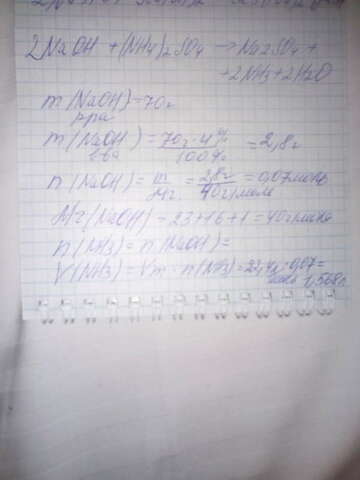 2NaOH + (NH4)2SO4 → Na2SO4 +
+2NH3+2H2O
m(NaOH)=70г
рра
m(NaOH) = 70г·4% = 2,8г
в-ва 100%
n(NaOH) = m = 2,8г = 0,07моль
Mr 40г/моль
Mr(NaOH) = 23+16+1=40г/моль
n(NH3) = n(NaOH)=
V(NH3) = Vm · n(NH3)=22,4л · 0,07=
1,568л